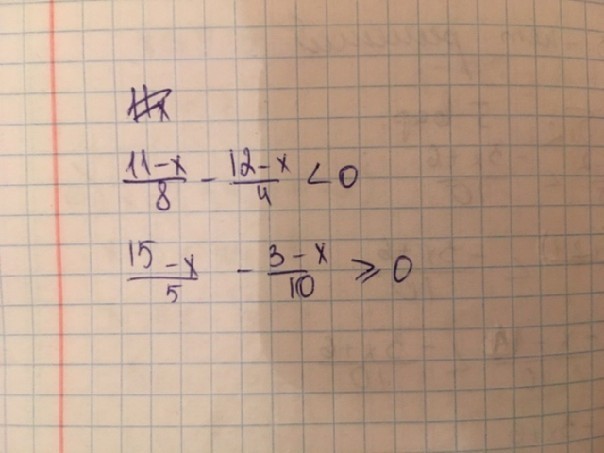 (11-x)/8 - (12-x)/4 < 0
(15-x)/5 - (3-x)/10 ⩾ 0